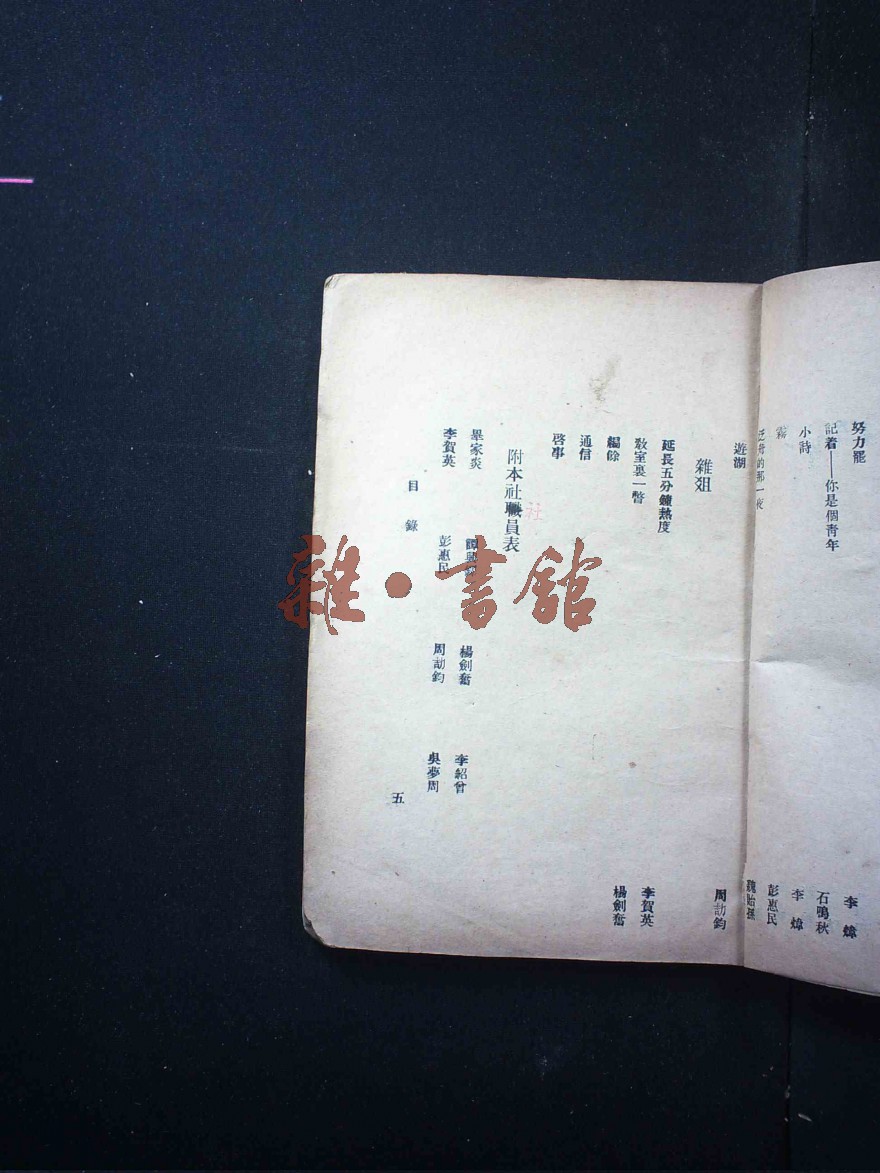 努力罷 李煒
記着——你是個青年 石鳴秋
小詩 李煒
霧 彭惠民
泛舟的那一夜 魏貽孫
遊湖 周劼鈞
雜俎
延長五分鐘熱度
教室裏一瞥 李賀英
編餘 楊劍奮
通信
啓事
附本社職員表
社
畢家炎 楊劍奮 李紹曾
李賀英 彭惠民 周劼鈞 吳夢周
目錄 五
雜·書舘